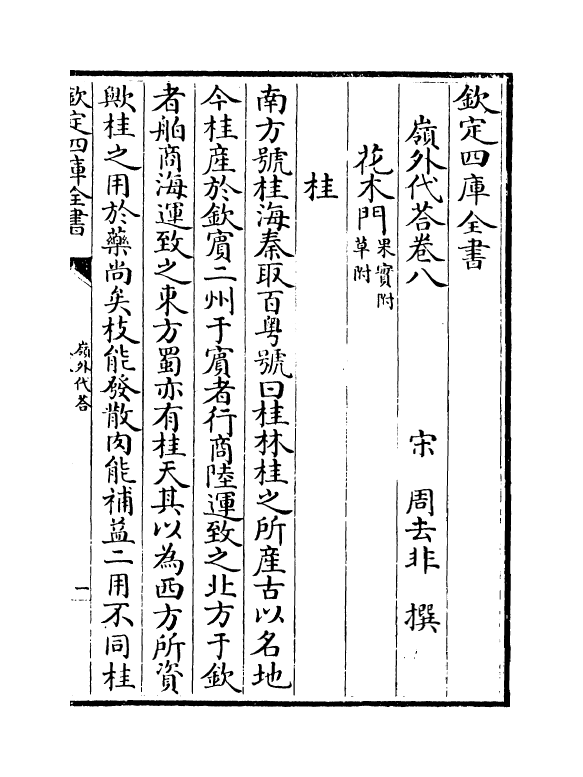 欽定四庫全書
嶺外代荅卷八
宋 周去非 撰
花木門果實附草附
桂
南方號桂海秦取百粤號曰桂林桂之所産古以名地
今桂産於欽賓二州于賓者行商陸運致之北方于欽
者舶商海運致之東方蜀亦有桂天其以為西方所資
歟桂之用於藥尚矣枝能發散肉能補益二用不同桂
欽定四庫全書
嶺外代荅
一